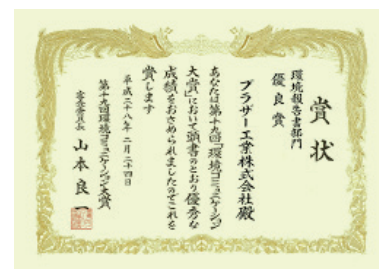 賞状
環境報告書部門
優良賞
ブラザー工業株式会社殿
あなたは第十九回「環境コミュニケーション
大賞」において頭書のとおり優秀な
成績をおさめられましたのでこれを
賞します
平成二十八年二月二十四日
第十九回環境コミュニケーション大賞
審査委員長 山本良一